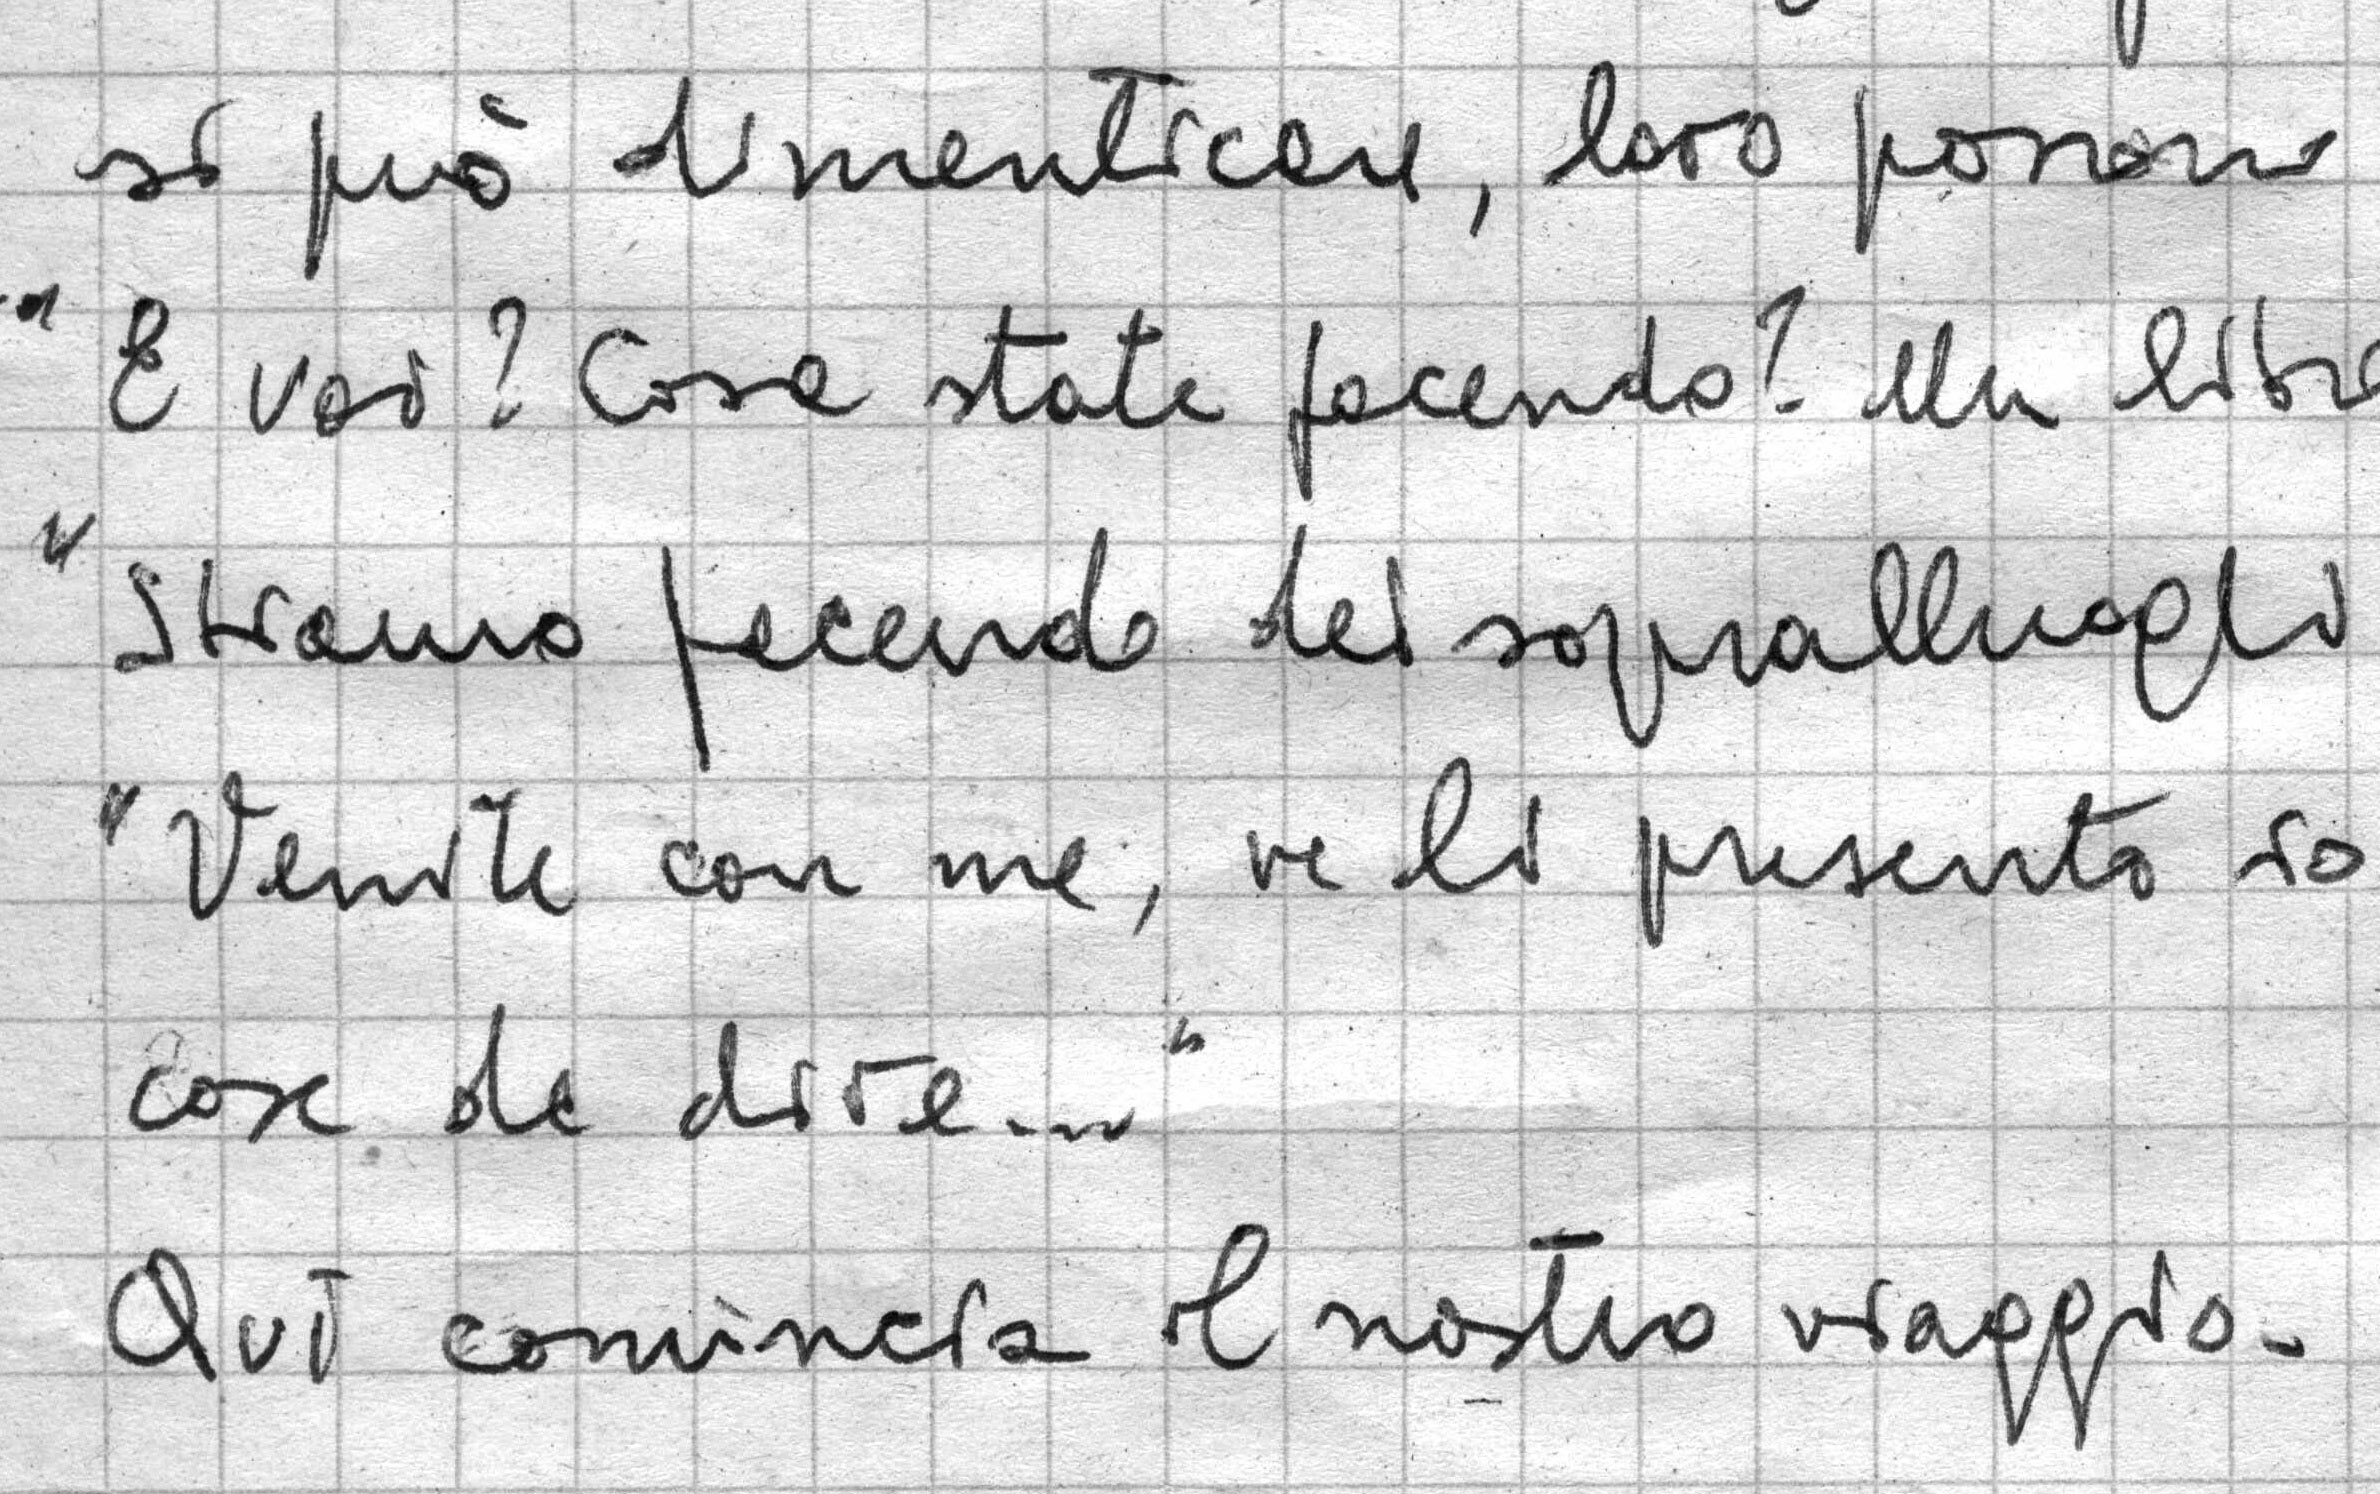 si può dimenticare, loro possono
"E voi? Cosa state facendo? Un libro
"Stiamo facendo dei sopralluoghi
"Venite con me, ve li presento io
cose da dire..."
Qui comincia il nostro viaggio.